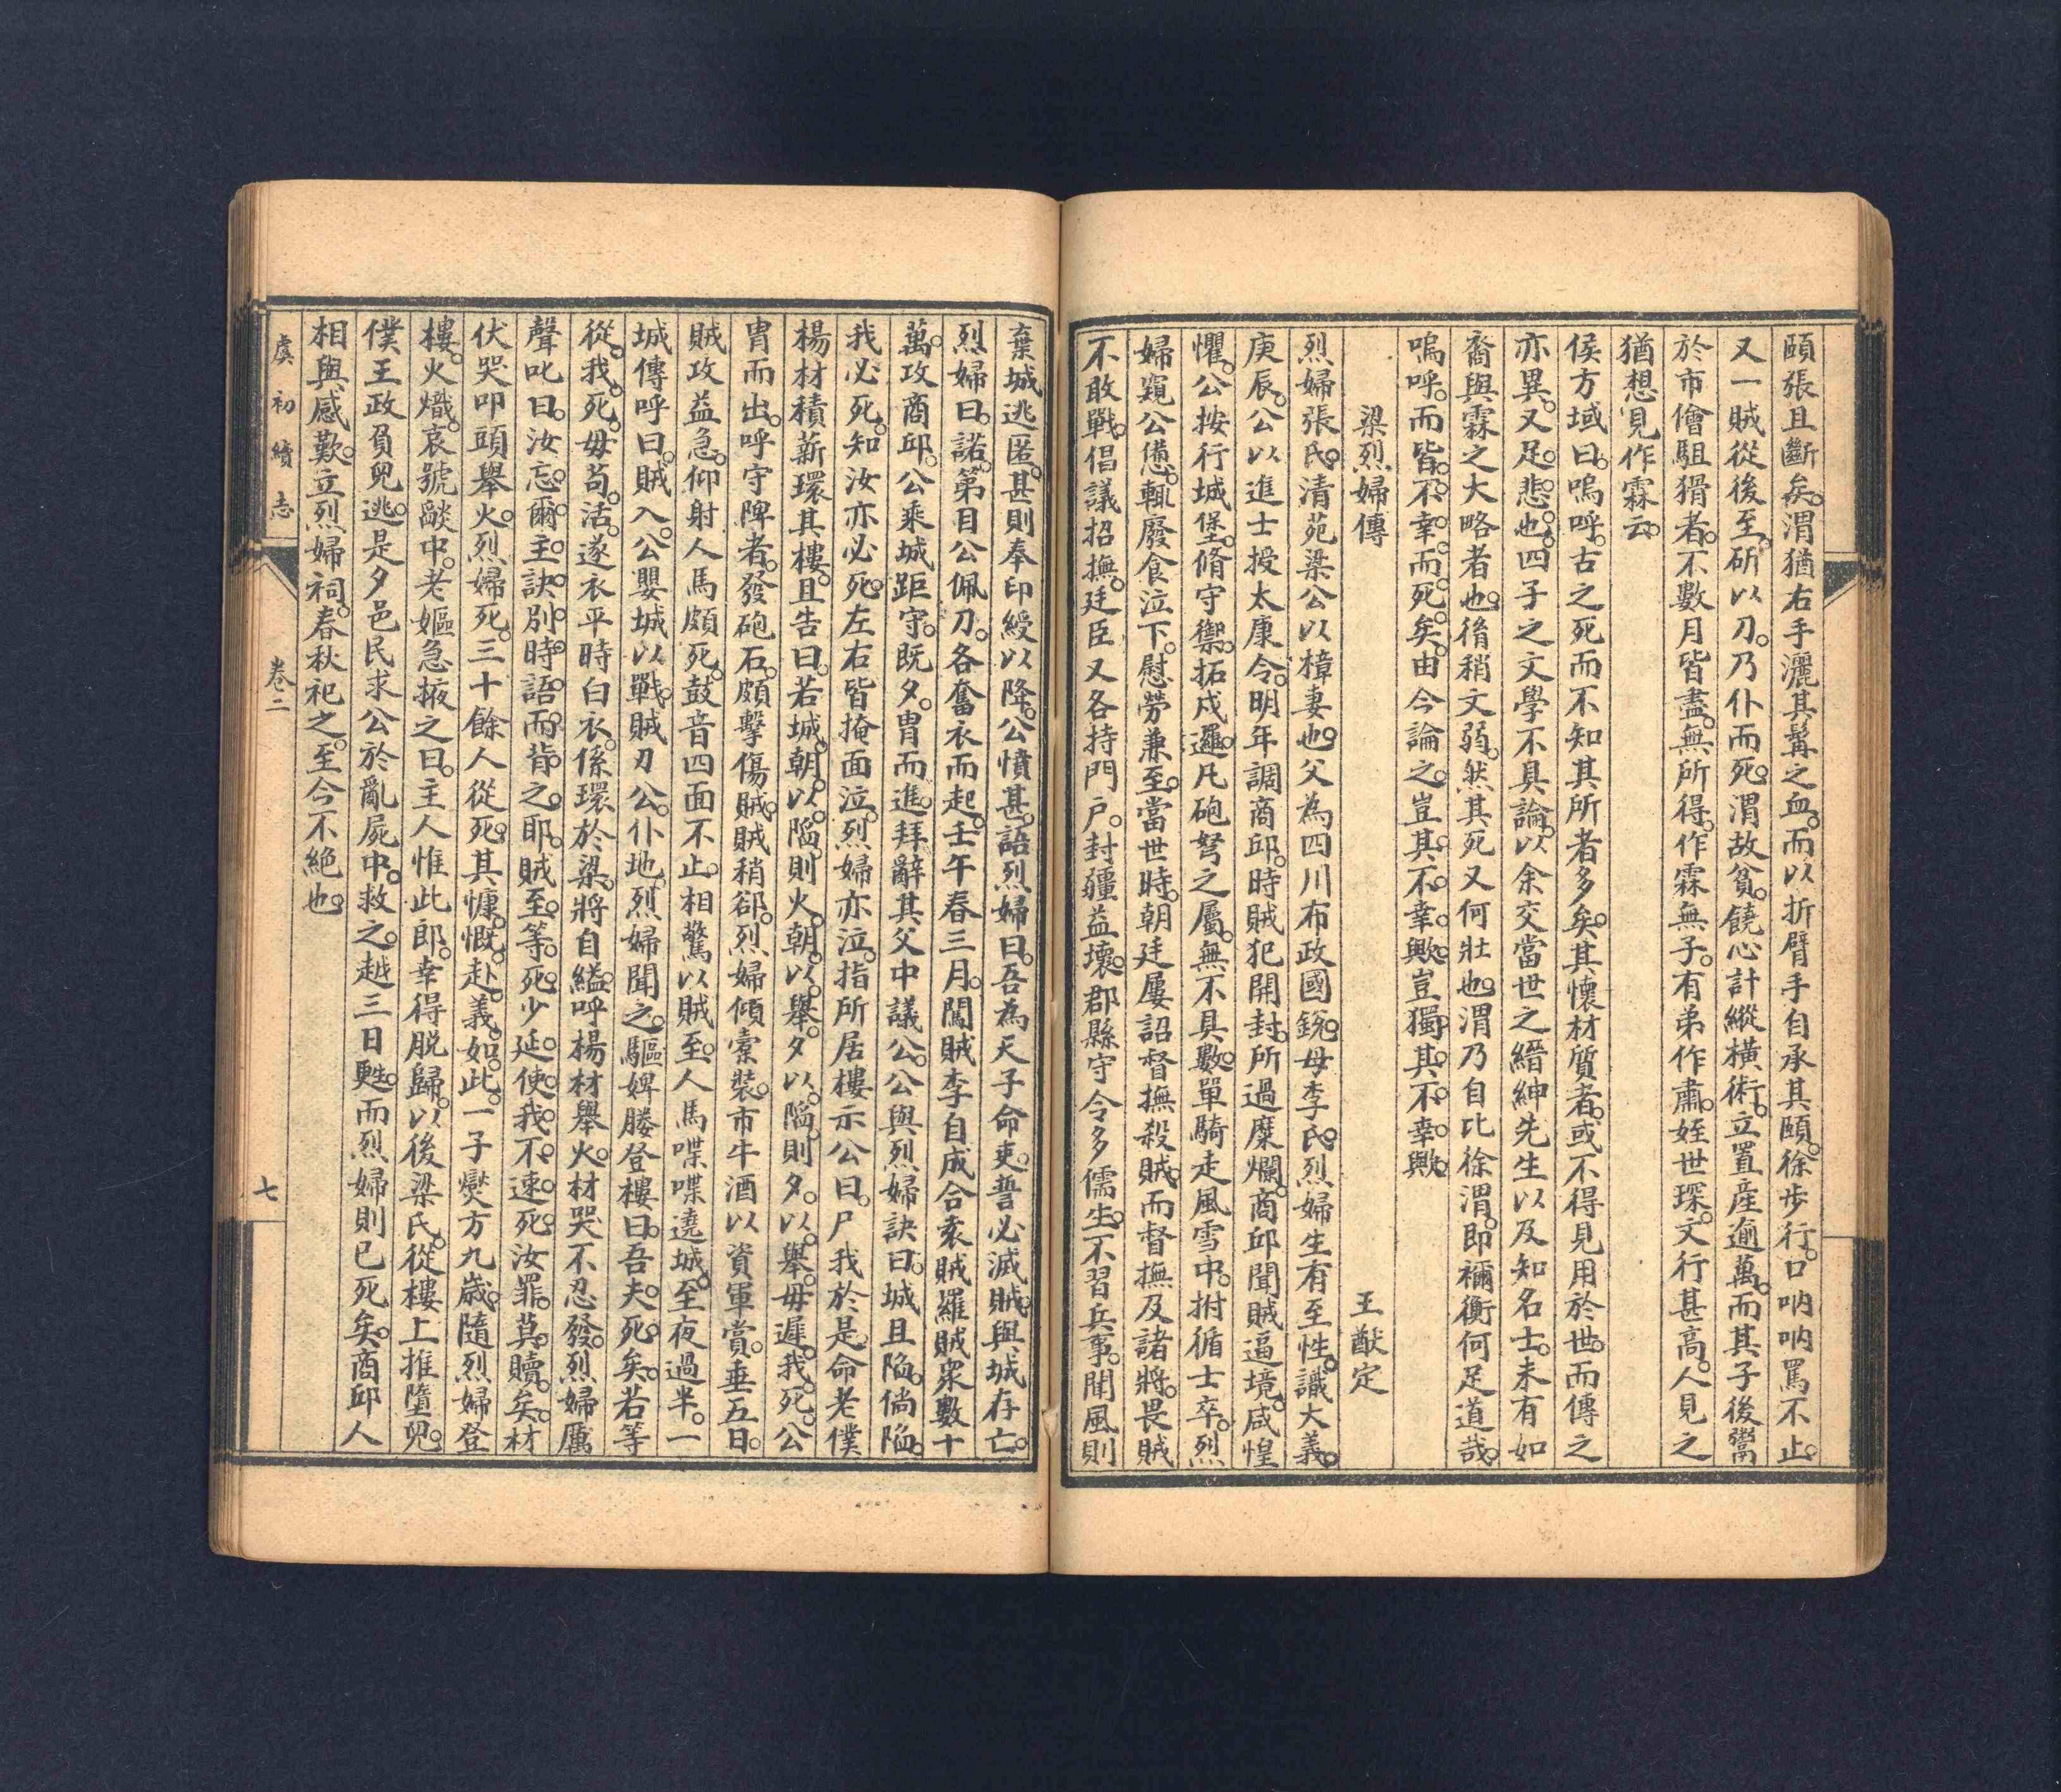 頤張且斷矣。渭猶右手灑其髯之血。而以折臂手自承其頤。徐步行。口呐呐罵不止。
又一賊從後至。斫以刀。乃仆而死。渭故貧。饒心計縱橫術。立置産逾萬。而其子後鬻
於市儈駔猾者。不數月皆盡。無所得。作霖無子。有弟作肅。姪世琛。文行甚高。人見之
猶想見作霖云。
侯方域曰。嗚呼。古之死而不知其所者多矣。其懷材質者。或不得見用於世。而傳之
亦異。又足悲也。四子之文學不具論。以余交當世之縉紳先生以及知名士。未有如
裔與霖之大略者也。脩稍文弱。然其死又何壯也。渭乃自比徐渭。即禰衡何足道哉。
嗚呼。而皆不幸而死矣。由今論之。豈其不幸歟。豈獨其不幸歟。
梁烈婦傳　王猷定
烈婦張氏。清苑梁公以樟妻也。父為四川布政國銳。母李氏。烈婦生有至性。識大義。
庚辰。公以進士授太康令。明年調商邱。時賊犯開封。所過糜爛。商邱聞賊逼境。咸惶
懼。公按行城堡。脩守禦。拓戍邏。凡砲弩之屬。無不具數。單騎走風雪中。拊循士卒。烈
婦窺公憊。輒廢食泣下。慰勞兼至。當世時。朝廷屢詔督撫殺賊。而督撫及諸將。畏賊
不敢戰。倡議招撫。廷臣又各持門户。封疆益壞。郡縣守令多儒生。不習兵事。聞風則
棄城逃匿。甚則奉印綬以降。公憤甚。語烈婦曰。吾為天子命吏。誓必滅賊。與城存亡。
烈婦曰。諾。第目公佩刀。各奮衣而起。壬午春三月。闖賊李自成合袁賊羅賊衆數十
萬。攻商邱。公乘城距守。既夕。冑而進。拜辭其父中議公。公與烈婦訣曰。城且陷。倘陷。
我必死。知汝亦必死。左右皆掩面泣。烈婦亦泣。指所居樓示公曰。尸我於是。命老僕
楊材積薪環其樓。且告曰。若城朝以陷。則火朝以舉。夕以陷。則夕以舉。毋遲。我死。公
冑而出。呼守陴者。發砲石。頗擊傷賊。賊稍郤。烈婦傾橐裝。市牛酒以資軍賞。垂五日。
賊攻益急。仰射人馬頗死。鼓音四面不止。相驚以賊至。人馬喋喋遶城。至夜過半。一
城傳呼曰。賊入。公嬰城以戰。賊刀公。仆地。烈婦聞之。驅婢媵登樓曰。吾夫死矣。若等
從我死。毋苟活。遂衣平時白衣。係環於梁。將自縊。呼楊材舉火。材哭不忍發。烈婦厲
聲叱曰。汝忘爾主訣別時語而背之耶。賊至等死。少延使我不速死。汝罪莫贖矣。材
伏哭叩頭舉火。烈婦死。三十餘人從死。其慷慨赴義如此。一子爕方九歲。隨烈婦登
樓。火熾。哀號燄中。老嫗急掖之曰。主人惟此郎。幸得脱歸。以後梁氏。從樓上推墮兒。
僕王政負兒逃。是夕邑民求公於亂屍中。救之。越三日甦。而烈婦則已死矣。商邱人
相與感歎。立烈婦祠。春秋祀之。至今不絶也。
虞初續志　卷二　七